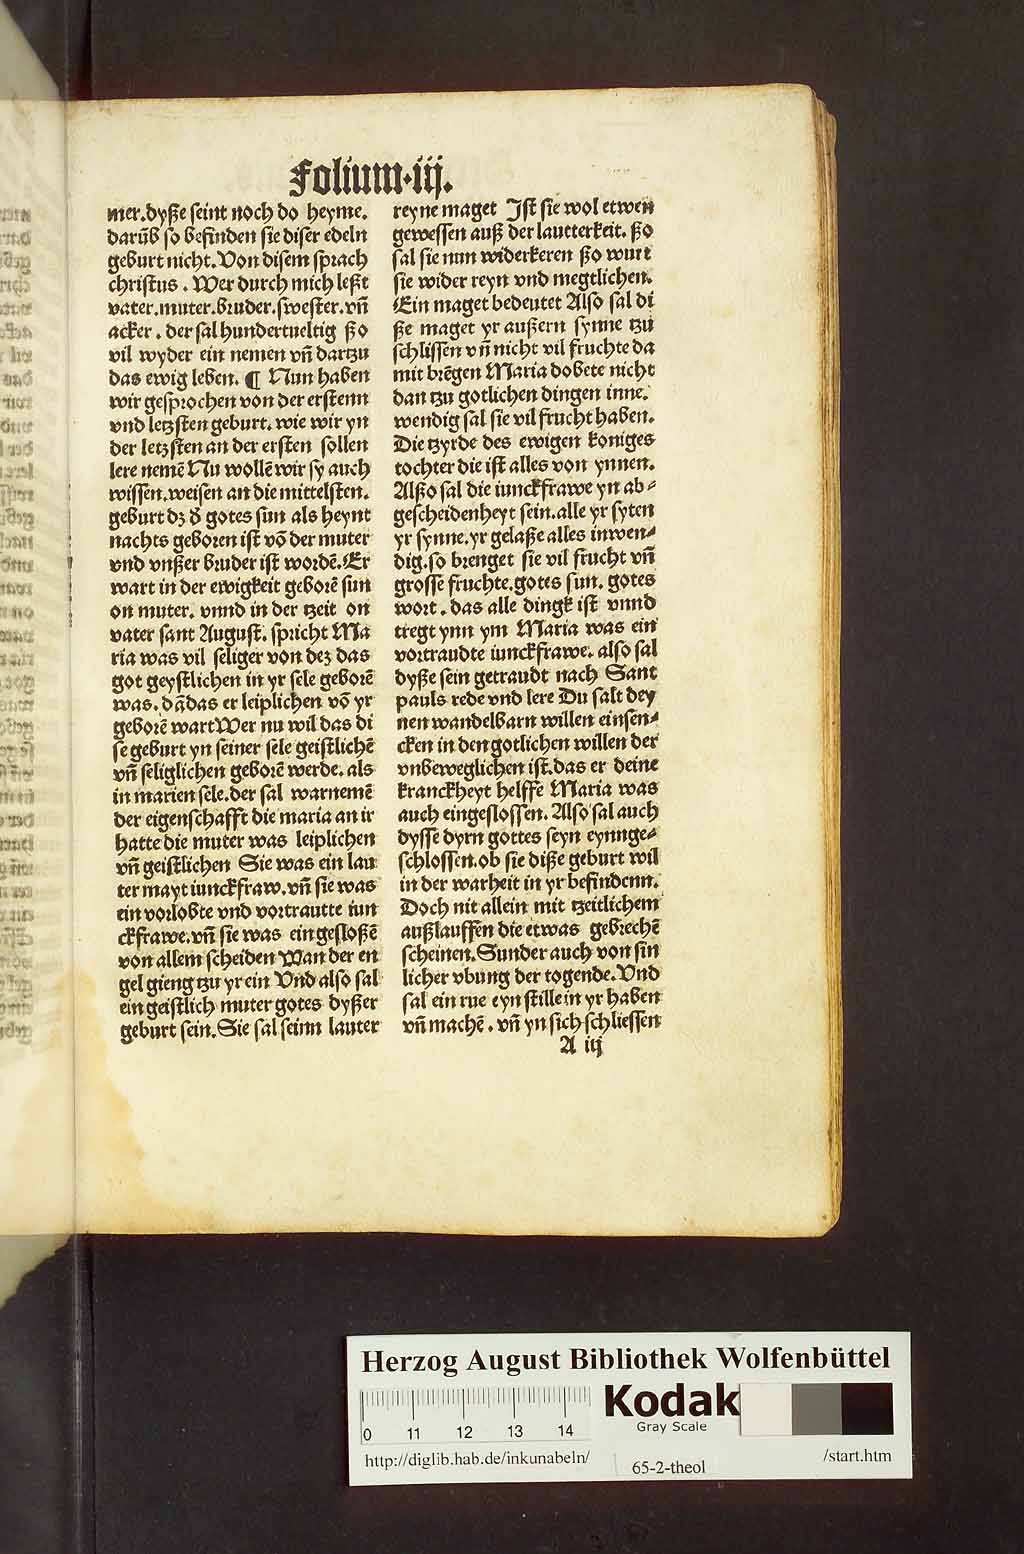 Folium·iij.
mer.dyße seint noch do heyme.
darūb so befinden sie diser edeln
geburt nicht.Von disem sprach
christus. Wer durch mich leßt
vater.muter.bruder.swester.vñ
acker. der sal hundertueltig ßo
vil wyder ein nemen vñ dartzu
das ewig leben. ¶ Nun haben
wir gesprochen von der erstenn
vnd letzsten geburt. wie wir yn
der letzsten an der ersten sollen
lere nemē Nu wollē wir sy auch
wissen.weisen an die mittelsten.
geburt dz d̄ gotes sun als heynt
nachts geboren ist vō der muter
vnd vnßer bruder ist wordē.Er
wart in der ewigkeit geborē sun
on muter. vnnd in der tzeit on
vater sant August. spricht Ma
ria was vil seliger von dez das
got geystlichen in yr sele geborē
was. dādas er leiplichen vō yr
geborē wart Wer nu wil das di
se geburt yn seiner sele geistlichē
vñ seliglichen geborē werde. als
in marien sele.der sal warnemē
der eigenschafft die maria an ir
hatte die muter was leiplichen
vñ geistlichen Sie was ein lau
ter mayt iunckfraw.vñ sie was
ein vorlobte vnd vortrautte iun
ckfrawe.vñ sie was ein gesloßē
von allem scheiden Wan der en
gel gieng tzu yr ein Vnd also sal
ein geistlich muter gotes dyßer
geburt sein.Sie sal seinn lauter
reyne maget Ist sie wol etwen
gewessen auß der lautterkeit. ßo
sal sie nun widerkeren ßo wurt
sie wider reyn vnd megtlichen.
Ein maget bedeutet Also sal di
ße maget yr außern synne tzu
schlissen vñ nicht vil fruchte da
mit brēgen Maria dobete nicht
dan tzu gotlichen dingen inne.
wendig sal sie vil frucht haben.
Die tzyrde des ewigen koniges
tochter die ist alles von ynnen.
Alßo sal die iunckfrawe yn ab⸗
gescheidenheyt sein.alle yr syten
yr synne.yr gelaße alles inwen⸗
dig.so brenget sie vil frucht vñ
grosse fruchte.gotes sun. gotes
wort. das alle dingk ist vnnd
tregt ynn ym Maria was ein
vortraudte iunckfrawe. also sal
dyße sein getraudt nach Sant
pauls rede vnd lere Du salt dey
nen wandelbarn willen einsen⸗
cken in den gotlichen willen der
vnbeweglichen ist.das er deine
kranckheyt helffe Maria was
auch eingeslossen. Also sal auch
dysse dyrn gottes seyn eynnge⸗
schlossen.ob sie diße geburt wil
in der warheit in yr befindenn.
Doch nit allein mit tzeitlichem
außlauffen die etwas gebrechē
scheinen.Sunder auch von sin
licher vbung der togende.Vnd
sal ein rue eyn stille in yr haben
vñ machē. vñ yn sich schliessen
A iij
Herzog August Bibliothek Wolfenbüttel
0 11 12 13 14
Kodak
Gray Scale
http://diglib.hab.de/inkunabeln/ 65-2-theol /start.htm